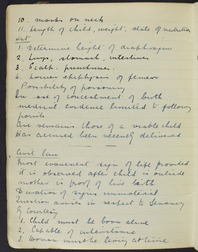 10. marks on neck
11. Length of child, weight, state of nutrition
1. Determine height of diaphragm
2. Lungs, stomach, intestines
3. Scalp. punctures.
4. Lower epiphysis of femur
Possibility of poisoning
In case of concealment of birth
medical evidence limited to following
points
Are remains those of a viable child
Has accused been recently delivered
Civil law
Most convenient sign of life provided
it is observed after child is outside
mother is proof of live birth
Duration of signs immaterial
Question arises in respect to Tenancy
by Courtesy
1. Child must be born alive
2. Capable of inheritance
3. Woman must be living at time